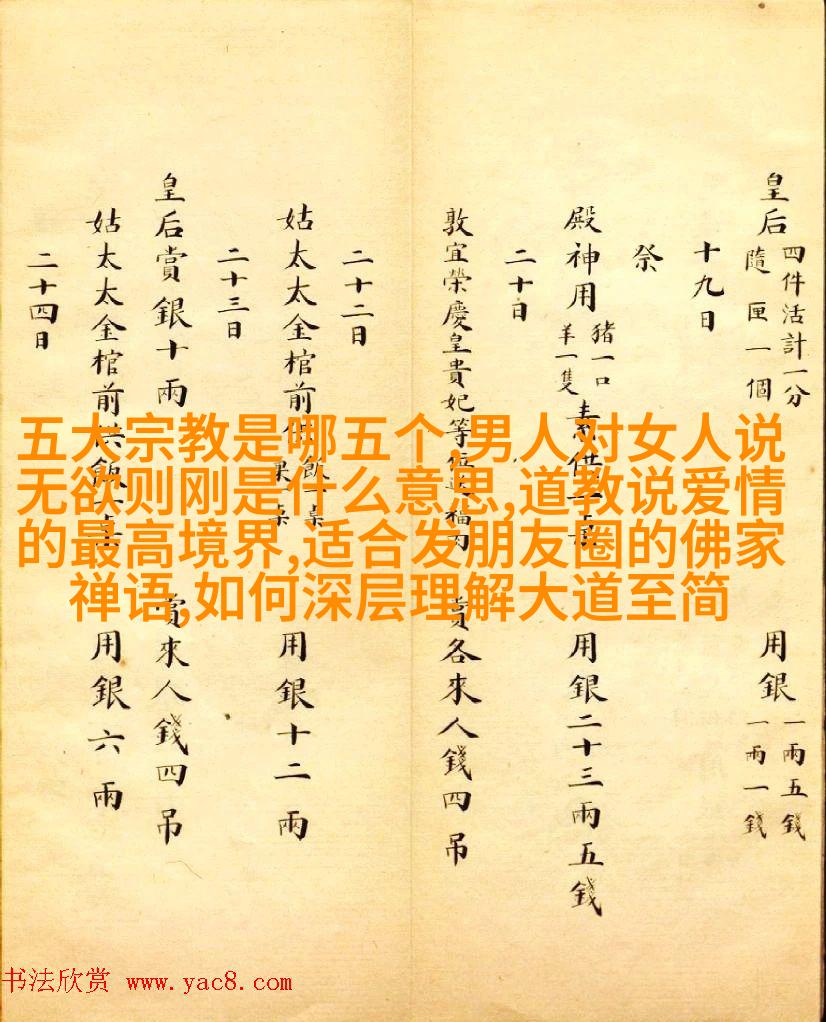 皇后 四件活計一分 隨匣一個 用銀 一兩五錢 一兩一錢
十九日
祭
殿神用 猪一口 羊一隻 素供一桌 用銀二十三兩五錢
二十日
敦宜榮慶皇貴妃等位送福肉 賞各來人錢四吊
二十二日
姑太太金棺前供 飯一桌 菓一桌 用銀十二兩
二十三日
皇后賞銀十兩 賞來人錢四吊
姑太太金棺前供飯一桌 用銀六兩
二十四日
五大宗教是哪五个,男人对女人说
无欲则刚是什么意思,道教说爱情
的最高境界,适合发朋友圈的佛家
禅语,如何深层理解大道至简
书法欣赏 www.yac8.com